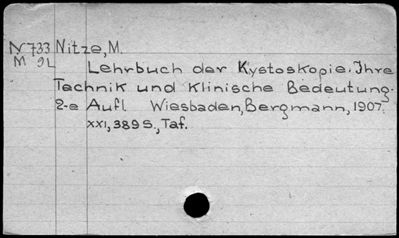 N 733 Nitze, M.
M 92 Lehrbuch der Kystoskopie. Ihre
Technik und Klinische Bedeutung.
2-e Aufl Wiesbaden, Bergmann, 1907.
XXI, 389 S., Taf.